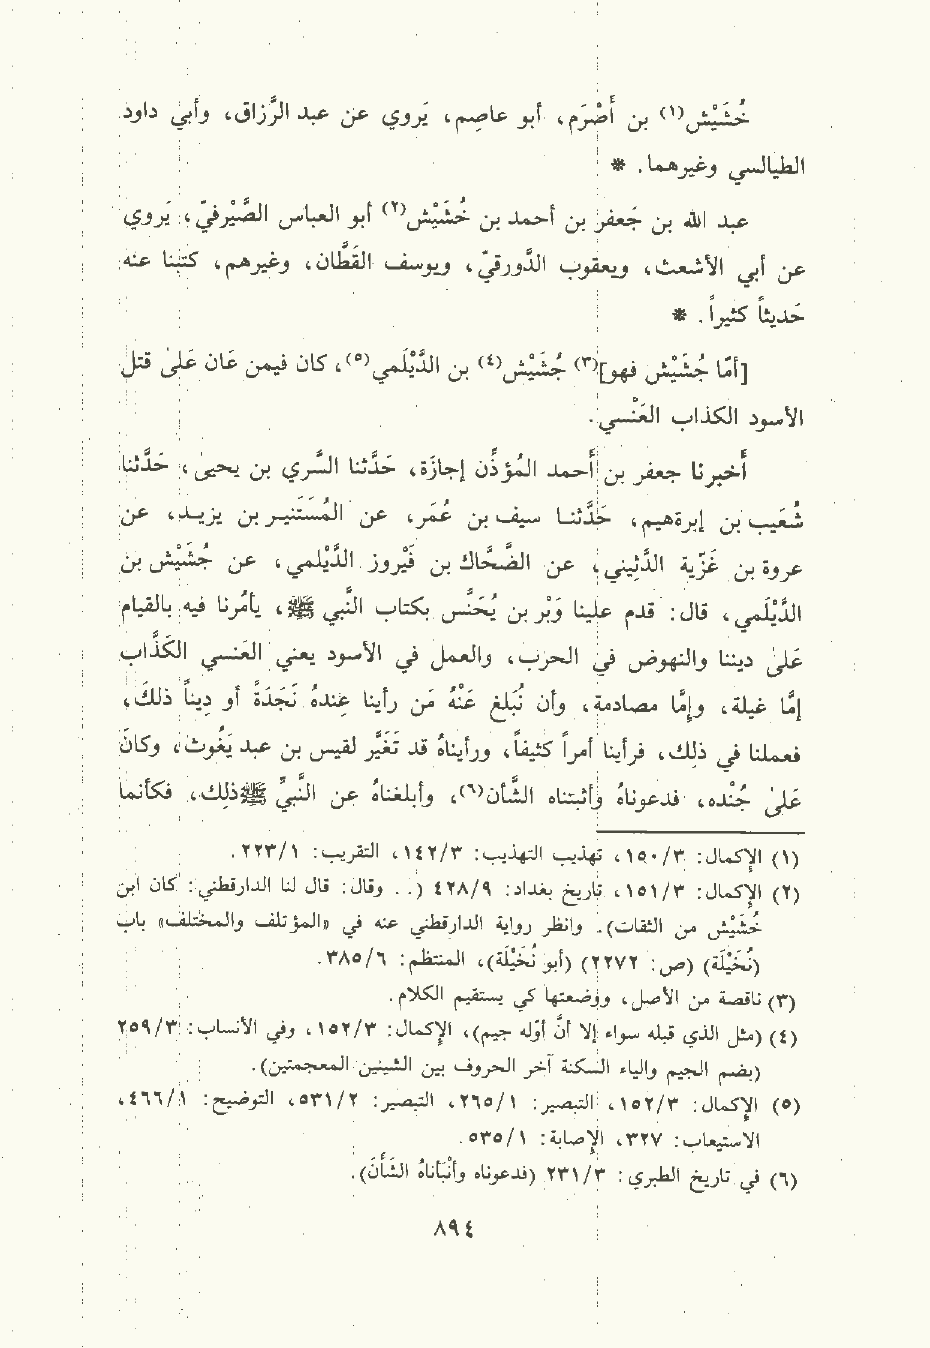 خُشَيْش(١) بن أَصْرَم، أبو عاصِم، يَروي عن عبد الرَّزاق، وأبي داود
الطيالسي وغيرهما. *
عبد الله بن جَعفر بن أحمد بن خُشَيْش(٢) أبو العباس الصَّيْرفيّ، يَروي
عن أبي الأشعث، ويعقوب الدَّورقيّ، ويوسف القَطَّان، وغيرهم، كتبنا عنه
حَديثاً كثيراً. *
[أمّا جُشَيْش فهو](٣) جُشَيْش(٤) بن الدَّيْلَمي(٥)، كان فيمن عَانَ عَلىٰ قتل
الأسود الكذاب العَنْسي.
أَخبرنا جعفر بن أَحمد المُؤذِّن إجازَة، حَدَّثنا السَّري بن يحيىٰ، حَدَّثنا
شُعَيب بن إبرةهيم، حَدَّثنا سيف بن عُمَر، عن المُسَتَنير بن يزيد، عن
عروة بن غَزّية الدَّثِيني، عن الضَّحاك بن فَيْروز الدَّيْلمي، عن جُشَيْش بن
الدَّيْلَمي، قال: قدم علينا وَبْر بن يُحَنَّس بكتاب النَّبي ﷺ، يأمُرنا فيه بالقيام
عَلىٰ ديننا والنهوض في الحرب، والعمل في الأسود يعني العَنسي الكَذَّاب
إمَّا غيلة، وإمَّا مصادمة، وأن نُبَلغ عَنْهُ مَن رأينا عِندهُ نَجَدَةً أو دِيناً ذلكَ،
فعملنا في ذلِك، فرأينا أمراً كثيفاً، ورأيناهُ قد تَغَيَّر لقيس بن عبد يَغُوث، وكانَ
عَلىٰ جُنْده، فدعوناهُ وأثبتناه الشَّأن(٦)، وأبلغناهُ عن النَّبيِّ ﷺ ذلِك. فكأنما
(١) الإكمال: ٣/١٥٠، تهذيب التهذيب: ٣/١٤٢، التقريب: ١/٢٢٣.
(٢) الإكمال: ٣/١٥١، تاريخ بغداد: ٩/٤٢٨ (.. وقال: قال لنا الدارقطني: كان ابن
خُشَيْش من الثقات). وانظر رواية الدارقطني عنه في «المؤتلف والمختلف» باب
(نُخَيْلَة) (ص: ٢٢٧٢) (أبو نُخَيْلَة)، المنتظم: ٦/٣٨٥.
(٣) ناقصة من الأصل، ووضعتها كي يستقيم الكلام.
(٤) (مثل الذي قبله سواء إلا أنَّ أوّله جيم)، الإكمال: ٣/١٥٢، وفي الأنساب: ٣/٢٥٩
(بضم الجيم والياء السكنة آخر الحروف بين الشينين المعجمتين).
(٥) الإكمال: ٣/١٥٢، التبصير: ١/٢٦٥، التبصير: ٢/٥٣١، التوضيح: ١/٤٦٦،
الاستيعاب: ٣٢٧، الإصابة: ١/٥٣٥.
(٦) في تاريخ الطبري: ٣/٢٣١ (فدعوناه وأنْبَأناهُ الشَأنَ).
٨٩٤